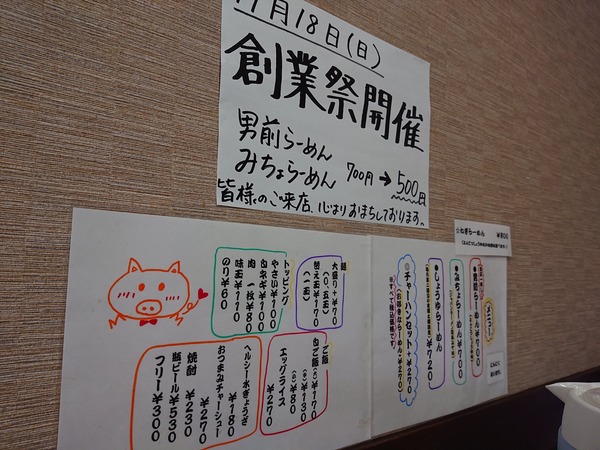 11月18日(日)
創業祭開催
男前らーめん
みちょらーめん
700円→500円
皆様のご来店、心よりおまちしております。
☆ねぎらーめん ¥800
メニュー
男前らーめん ¥700
みちょらーめん ¥700
しょうゆらーめん ¥720
チャーハンセット +¥270
お好きならーめん+¥270
※すべて税込価格です。
麺
大盛り +¥70
(0.5玉)
替え玉 ¥170
(1玉)
トッピング
やさい ¥100
白ネギ ¥100
肉 一枚 ¥80
味玉 ¥110
のり ¥60
ご飯
肉ご飯(大) ¥170
(中) ¥130
(小) ¥80
エッグライス
¥270
ヘルシー水ぎょうざ
¥180
おつまみチャーシュー
¥270
焼酎 ¥230
瓶ビール ¥530
フリー ¥300